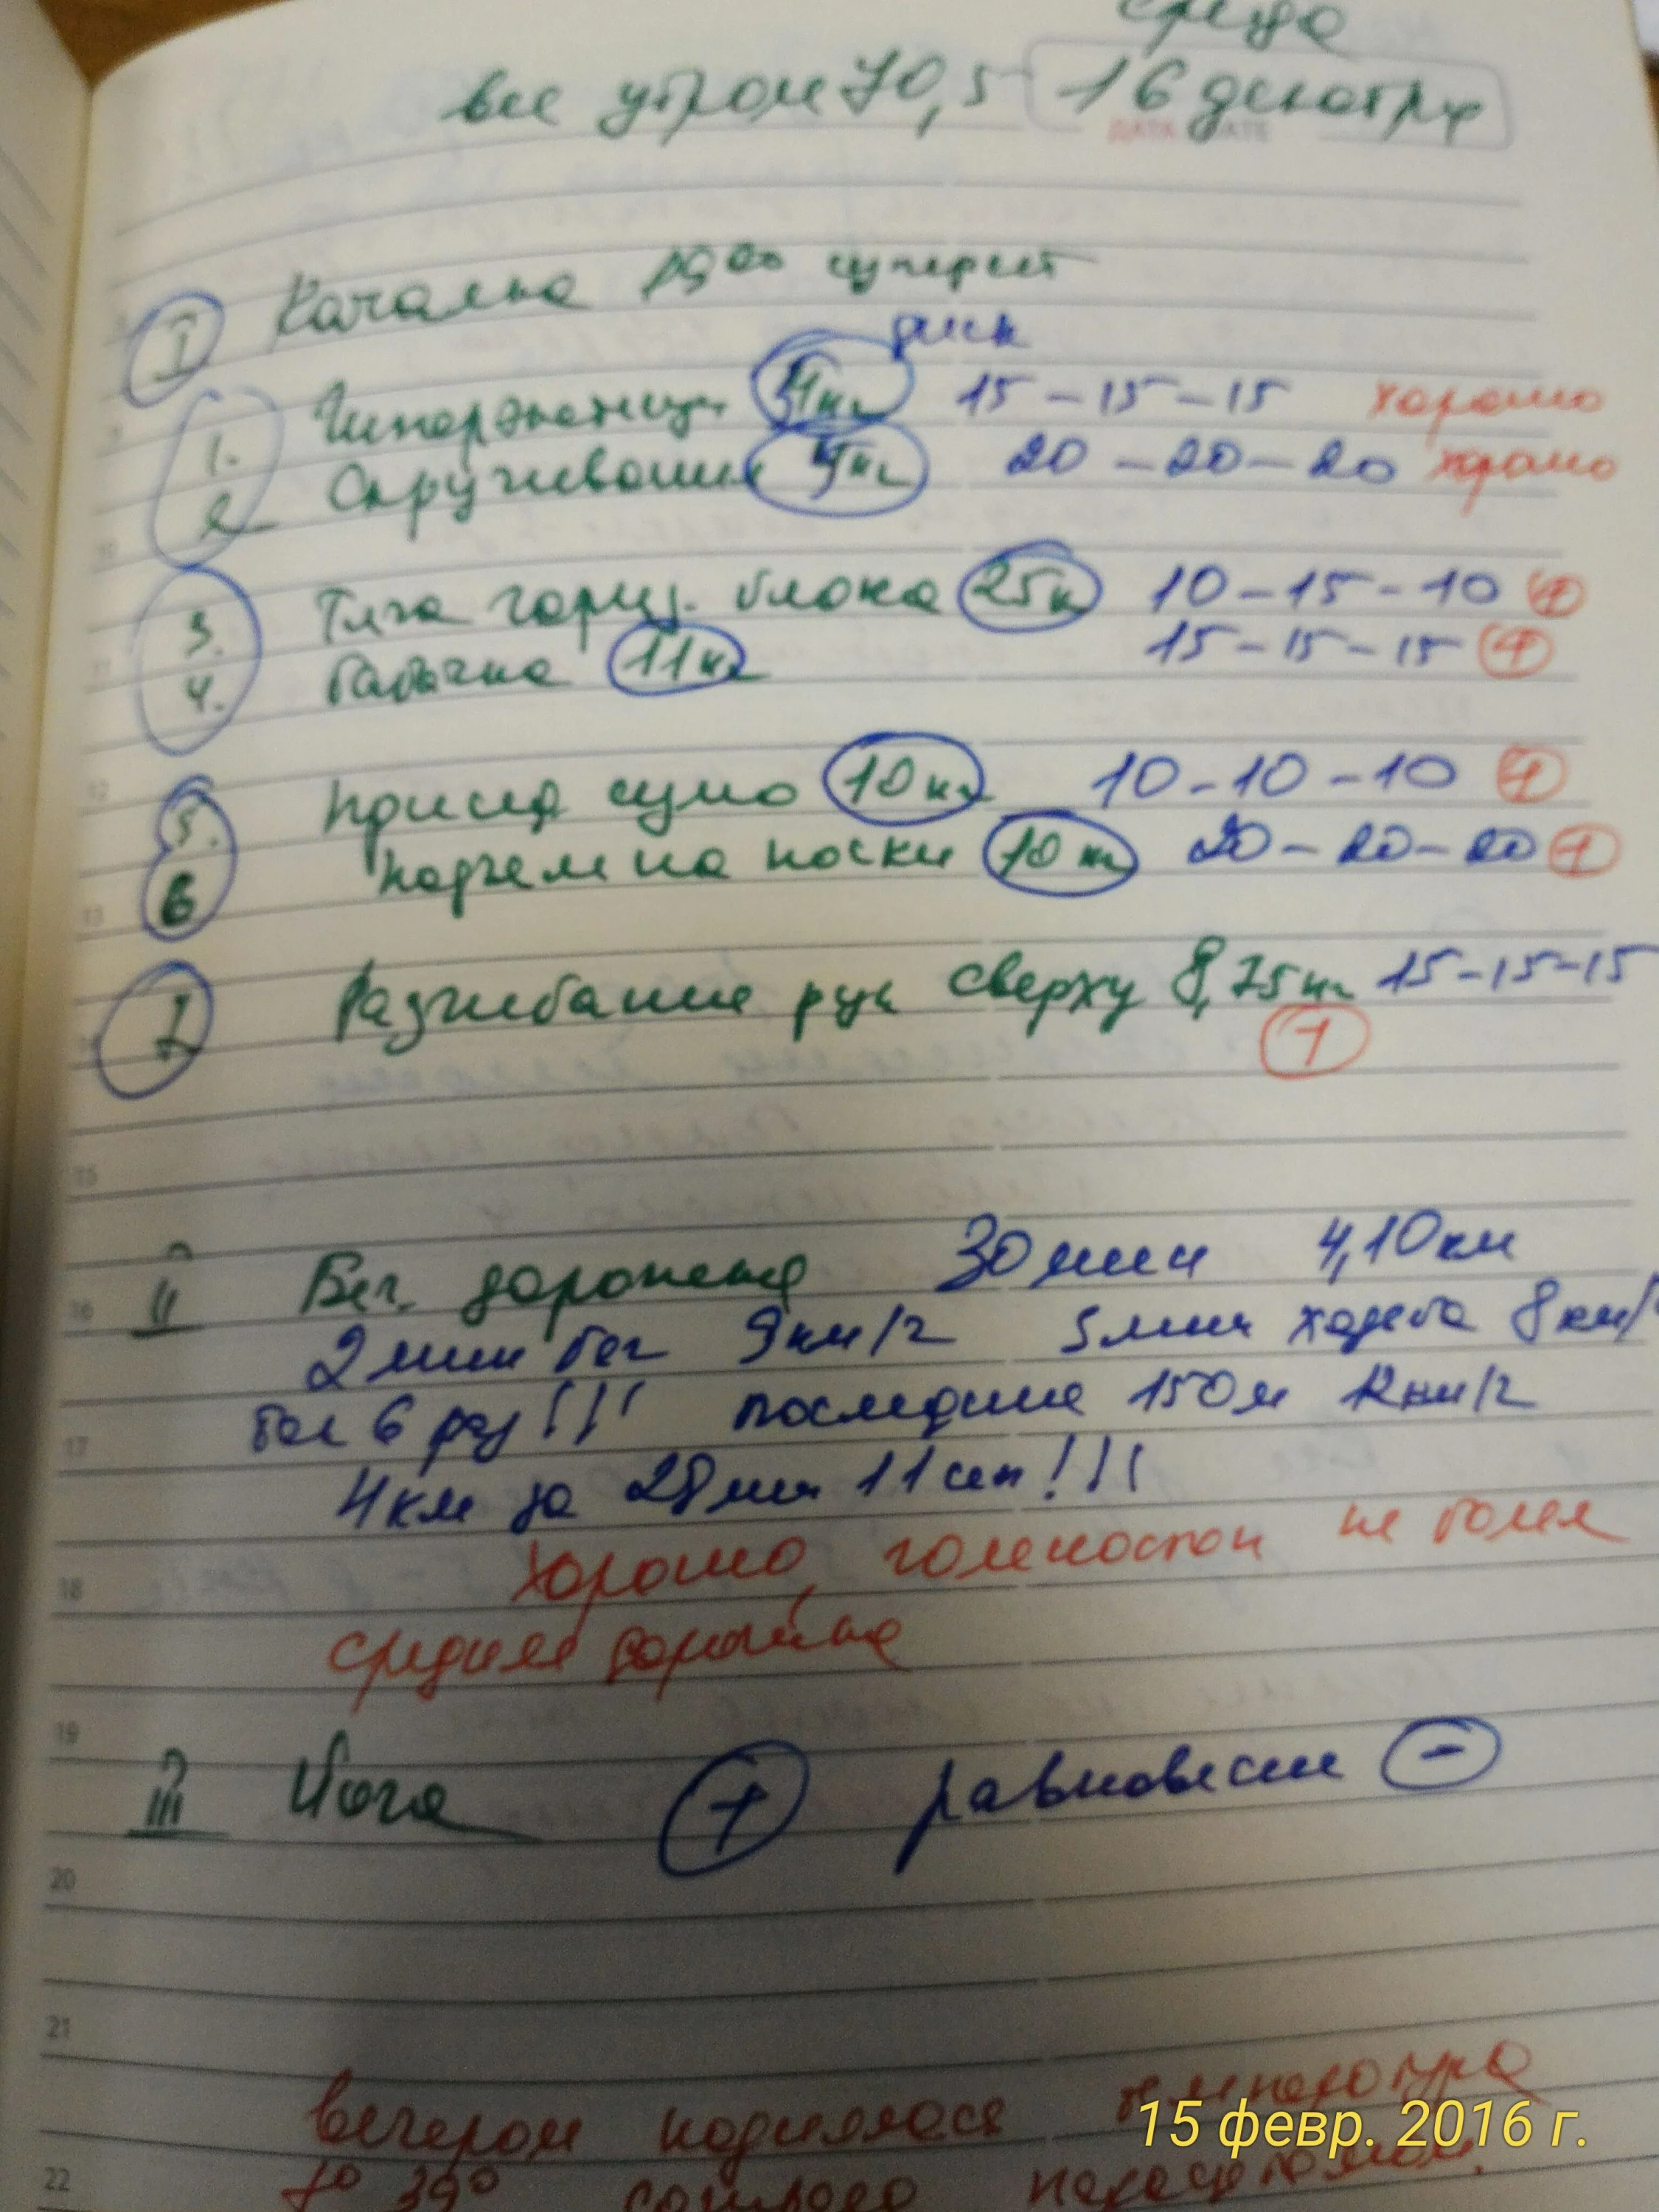 среда
вес утром 70,5 16 декабря
ДАТА DATE
I Качалка 19⁰⁰ суперсет
диск
1. Гиперэкстензия 5кг 15-15-15 хорошо
2 Скручивание 5кг 20-20-20 хорошо
3. Тяга гориз. блока 25к 10-15-10 +
4. бабочка 11кг 15-15-15 +
5. присяд сумо 10кг 10-10-10 +
6 подъем на носки 10кг 20-20-20 +
7 Разгибание рук сверху 8,75кг 15-15-15
+
II Бег. дорожка 30мин 4,10км
2мин бег 9км/г 3мин ходьба 8км/
6 раз!!! последние 150м 12км/г
4км за 28мин 11сек!!!
хорошо, голеностоп не болел
средняя дорожка
III Йога + равновесие -
вечером поднялась температура
15 февр. 2016 г.
до 39°
15
16
17
18
19
20
21
22